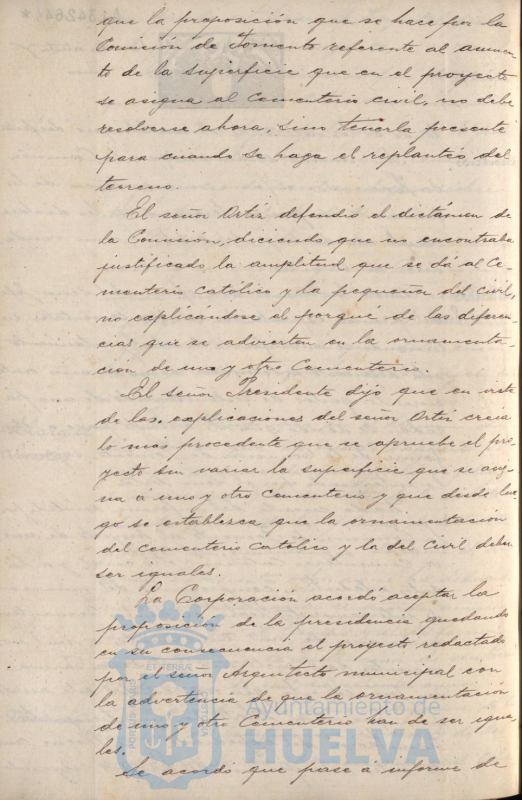 que la proposición que se hace por la
Comisión de Fomento referente al aumen-
to de la superficie que en el proyecto
se asigna al Cementerio civil, no debe
resolverse ahora, sino tenerla presente
para cuando se haga el replantéo del
terreno.
El señor Ortiz defendió el dictámen de
la Comisión, diciendo que no encontraba
justificado la amplitud que se dá al Ce-
menterio Católico y la pequeñez del civil,
no explicándose el porqué de las diferen-
cias que se advierten en la ornamenta-
ción de uno y otro Cementerio.
El señor Presidente dijo que en vista
de las explicaciones del señor Ortiz creia
lo más procedente que se apruebe el pro-
yecto sin variar la superficie que se asig-
na a uno y otro cementerio y que desde lue-
go se establezca que la ornamentación
del cementerio Católico y la del Civil deben
ser iguales.
La Corporación acordó aceptar la
proposición de la presidencia quedando
en su consecuencia el proyecto redactado
por el señor Arquitecto municipal con
la advertencia de que la ornamentación
de uno y otro Cementerio han de ser igua-
les.
Se acordó que pase á informe de
Ayuntamiento de
HUELVA